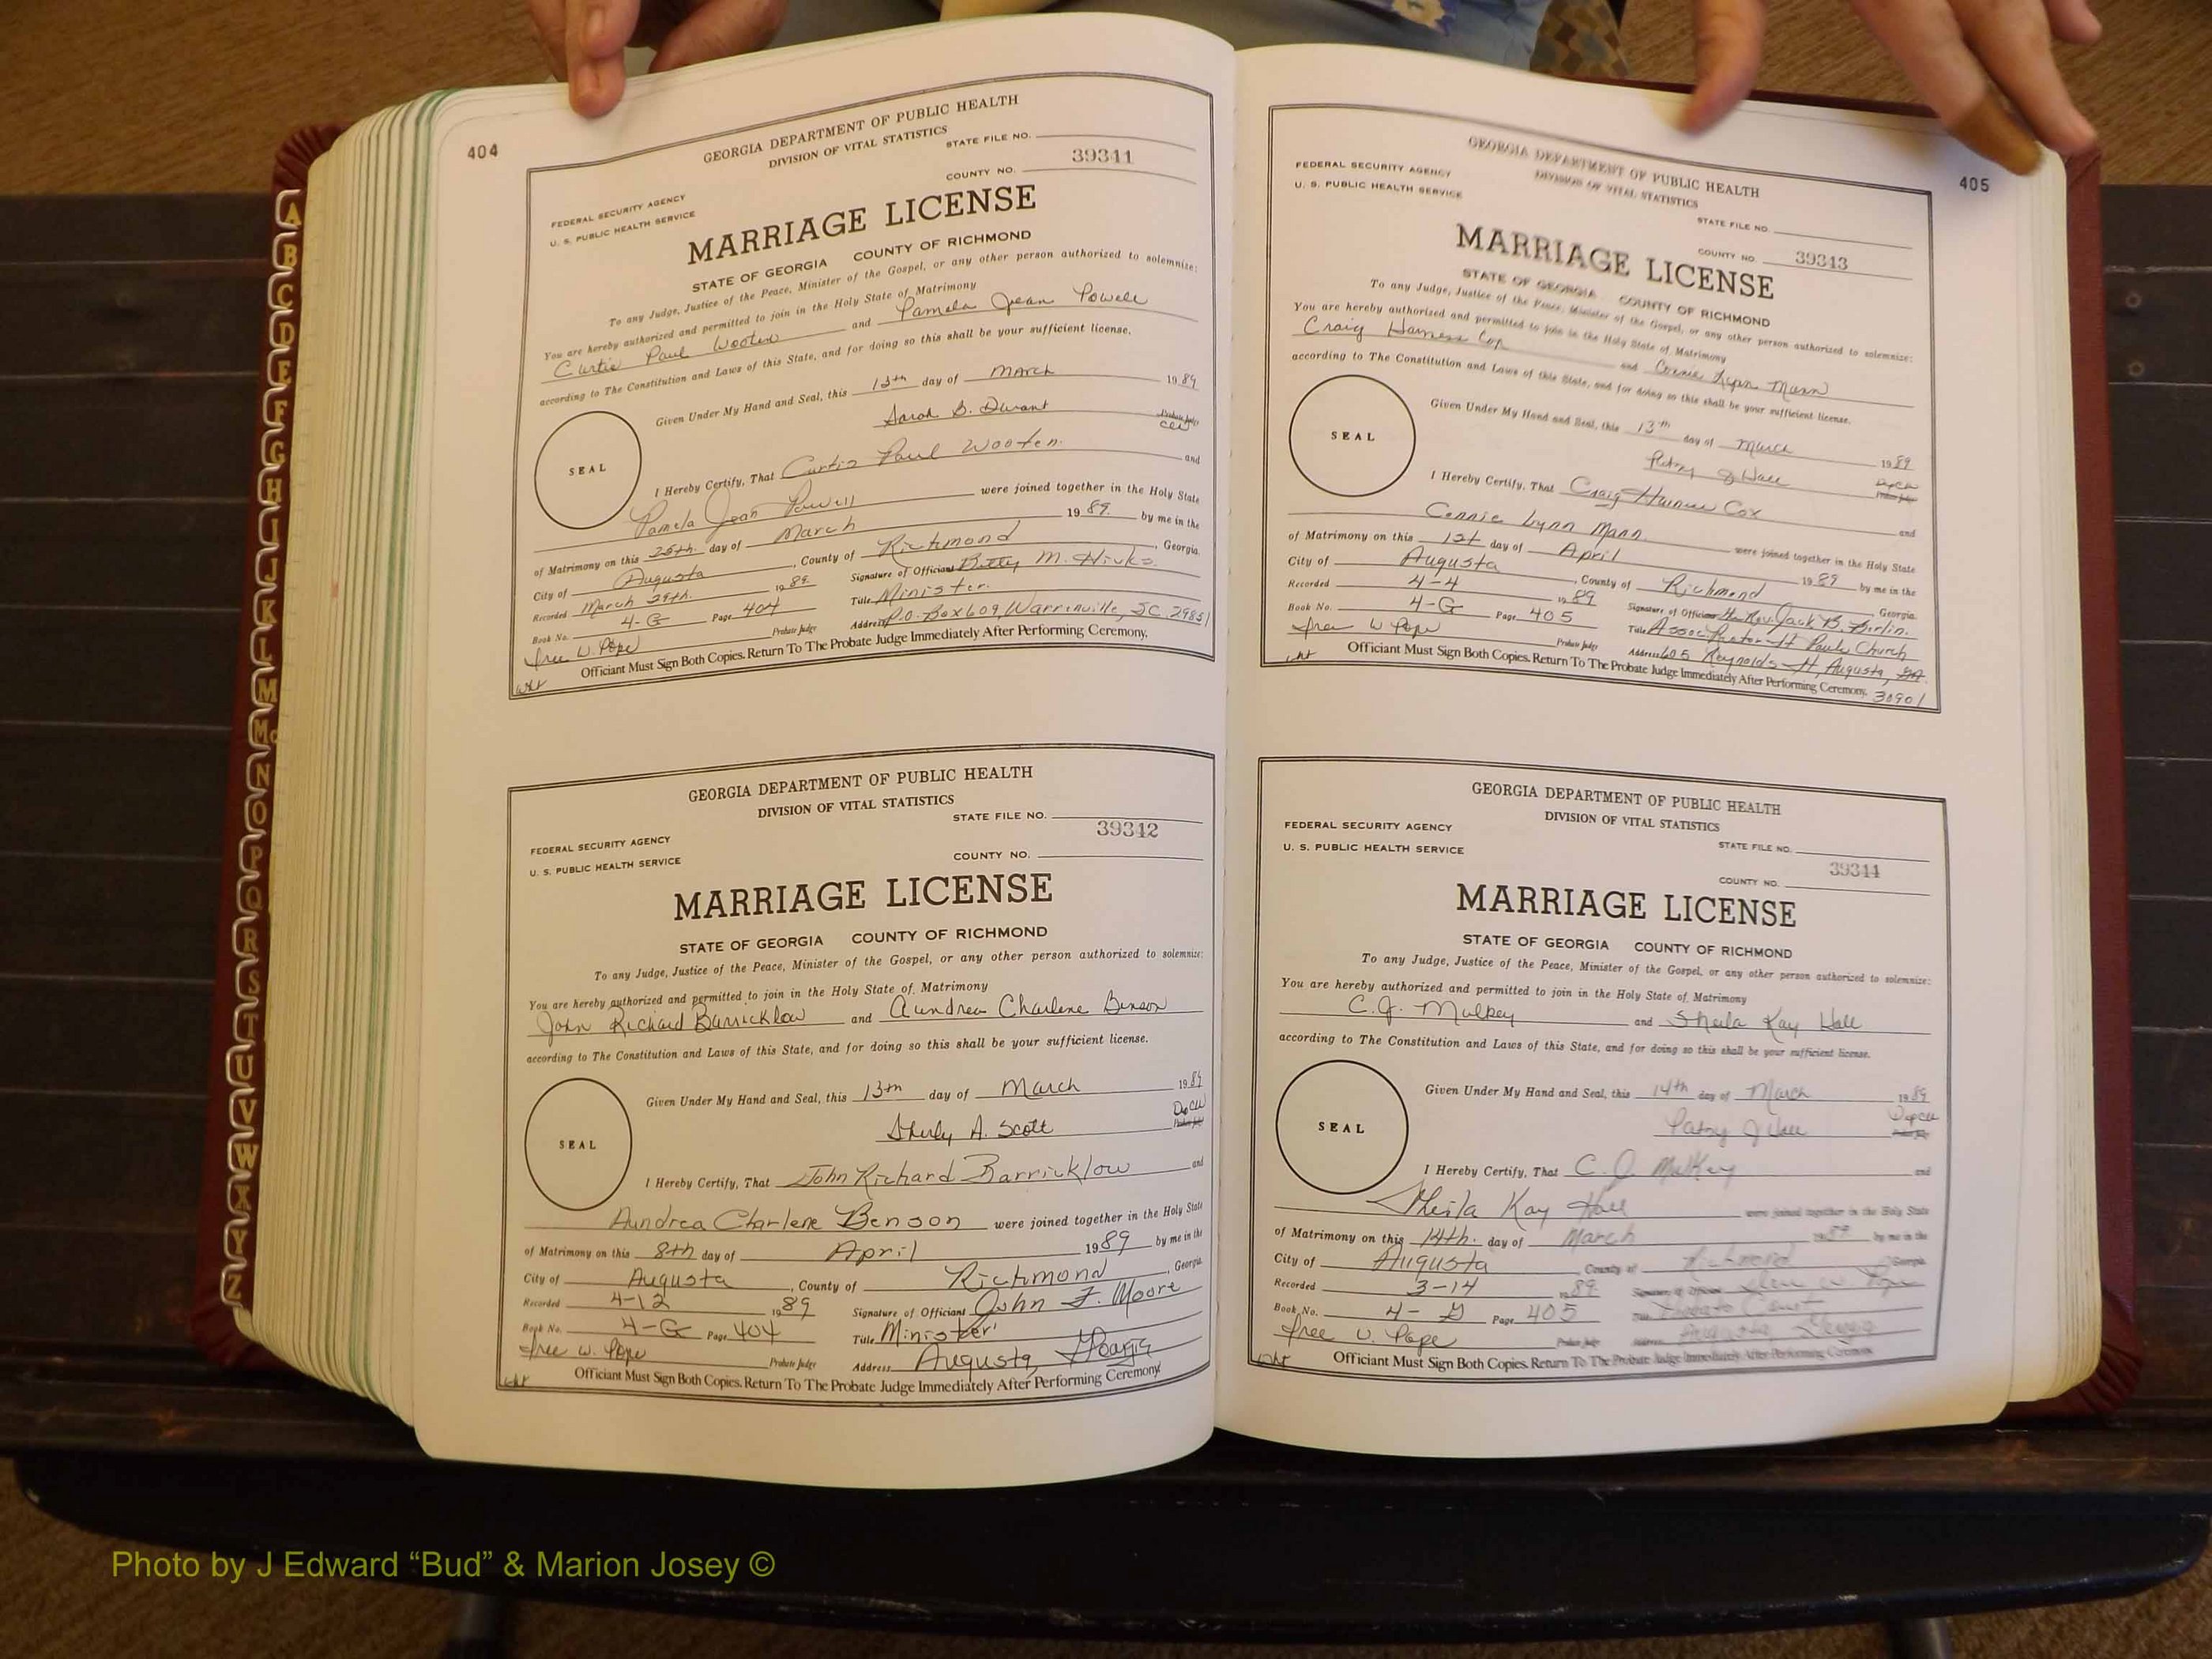 404
GEORGIA DEPARTMENT OF PUBLIC HEALTH
DIVISION OF VITAL STATISTICS
STATE FILE NO.
39341
COUNTY NO.
FEDERAL SECURITY AGENCY
U. S. PUBLIC HEALTH SERVICE
MARRIAGE LICENSE
STATE OF GEORGIA COUNTY OF RICHMOND
To any Judge, Justice of the Peace, Minister of the Gospel, or any other person authorized to solemnize:
You are hereby authorized and permitted to join in the Holy State of Matrimony
Curtis Paul Wooten and Pamela Jean Powell
according to The Constitution and Laws of this State, and for doing so this shall be your sufficient license.
Given Under My Hand and Seal, this 13th day of March 1989
Sarah B. Durant
SEAL
I Hereby Certify, That Curtis Paul Wooten and
Pamela Jean Powell were joined together in the Holy State
of Matrimony on this 25th. day of March 1989. by me in the
City of Augusta, County of Richmond, Georgia.
Recorded March 29th. 1989. Signature of Officiant Betty M. Hicks.
Book No. 4-G Page 404 Title Minister.
Probate Judge Address P.O. Box 609, Warrenville, SC 29851
W. Pope
Officiant Must Sign Both Copies. Return To The Probate Judge Immediately After Performing Ceremony.
GEORGIA DEPARTMENT OF PUBLIC HEALTH
DIVISION OF VITAL STATISTICS
STATE FILE NO.
39342
FEDERAL SECURITY AGENCY
U. S. PUBLIC HEALTH SERVICE
COUNTY NO.
MARRIAGE LICENSE
STATE OF GEORGIA COUNTY OF RICHMOND
To any Judge, Justice of the Peace, Minister of the Gospel, or any other person authorized to solemnize:
You are hereby authorized and permitted to join in the Holy State of Matrimony
John Richard Barricklow and Aundrea Charlene Benson
according to The Constitution and Laws of this State, and for doing so this shall be your sufficient license.
Given Under My Hand and Seal, this 13th day of March 1989
A. Scott
SEAL
I Hereby Certify, That John Richard Barricklow and
Aundrea Charlene Benson were joined together in the Holy State
of Matrimony on this 8th day of April 1989 by me in the
City of Augusta, County of Richmond, Georgia.
Recorded 4-12 1989 Signature of Officiant John F. Moore
Book No. 4-G Page 404 Title Minister
W. Pope Probate Judge Address Augusta, Georgia
Officiant Must Sign Both Copies. Return To The Probate Judge Immediately After Performing Ceremony.
405
GEORGIA DEPARTMENT OF PUBLIC HEALTH
DIVISION OF VITAL STATISTICS
FEDERAL SECURITY AGENCY
U. S. PUBLIC HEALTH SERVICE
STATE FILE NO.
COUNTY NO. 39343
MARRIAGE LICENSE
STATE OF GEORGIA COUNTY OF RICHMOND
To any Judge, Justice of the Peace, Minister of the Gospel, or any other person authorized to solemnize:
You are hereby authorized and permitted to join in the Holy State of Matrimony
Craig Cox and Connie Lynn Mann
according to The Constitution and Laws of this State, and for doing so this shall be your sufficient license.
Given Under My Hand and Seal, this 13th day of March 1989
Patsy J Hall
SEAL
I Hereby Certify, That Craig Cox and
Connie Lynn Mann were joined together in the Holy State
of Matrimony on this 1st day of April 1989 by me in the
City of Augusta, County of Richmond, Georgia.
Recorded 4-4 1989 Signature of Officiant The Rev. Jack B. Berlin.
Book No. 4-G Page 405 Title Assoc. Rector-St Pauls Church
W Pope Probate Judge Address 605 Reynolds St, Augusta, GA.
30901
Officiant Must Sign Both Copies. Return To The Probate Judge Immediately After Performing Ceremony.
GEORGIA DEPARTMENT OF PUBLIC HEALTH
DIVISION OF VITAL STATISTICS
FEDERAL SECURITY AGENCY
U. S. PUBLIC HEALTH SERVICE
STATE FILE NO.
39344
COUNTY NO.
MARRIAGE LICENSE
STATE OF GEORGIA COUNTY OF RICHMOND
To any Judge, Justice of the Peace, Minister of the Gospel, or any other person authorized to solemnize:
You are hereby authorized and permitted to join in the Holy State of Matrimony
C.J. Mulkey and Sheila Kay Hall
according to The Constitution and Laws of this State, and for doing so this shall be your sufficient license.
Given Under My Hand and Seal, this 14th day of March 1989
Patsy J Hall
SEAL
I Hereby Certify, That C. J. Mulkey and
Sheila Kay Hall were joined together in the Holy State
of Matrimony on this 14th. day of March 1989. by me in the
City of Augusta County of Richmond Georgia.
Recorded 3-14 1989. Signature of Officiant W Pope
Book No. 4-G Page 405 Title Probate Court
W. Pope Probate Judge Address Augusta, Georgia
Officiant Must Sign Both Copies. Return To The Probate Judge Immediately After Performing Ceremony.
A
B
C
D
E
F
G
H
I
J
K
L
M
Mc
N
O
P
Q
R
S
T
U
V
W
X
Y
Z
Photo by J Edward “Bud” & Marion Josey ©